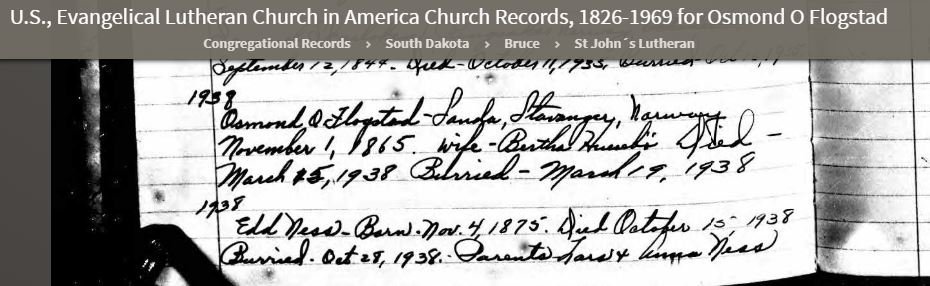 U.S., Evangelical Lutheran Church in America Church Records, 1826-1969 for Osmond O Flogstad
Congregational Records > South Dakota > Bruce > St John´s Lutheran
September 12, 1844. Died - October 11, 1935, Burried
1938
Osmond O Flogstad - Sanda, Stavanger, Norway
November 1, 1865. Wife - Bertha Died -
March 15, 1938 Burried - March 19, 1938
1938
Edd Ness - Born. Nov. 4, 1875. Died October 15, 1938
Burried. Oct 28, 1938. - Parents Lars & Anna Ness